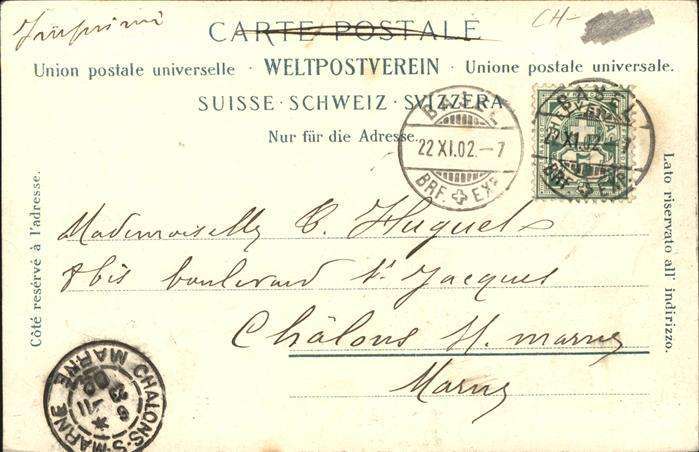 Imprimé
CH-
CARTE POSTALE
Union postale universelle · WELTPOSTVEREIN · Unione postale universale.
SUISSE · SCHWEIZ · SVIZZERA
Nur für die Adresse.
BASEL
22 XI.02.-7
BRF. EXP.
BASEL
22 XI.02.-7
BRF. EXP.
HELVETIA
Côté reservé à l'adresse.
Lato riservato all' indirizzo.
Mademoiselle C. Huguet
8 bis boulevard St Jacques
Châlons s. marne
Marne
CHALONS-S-MARNE
MARNE